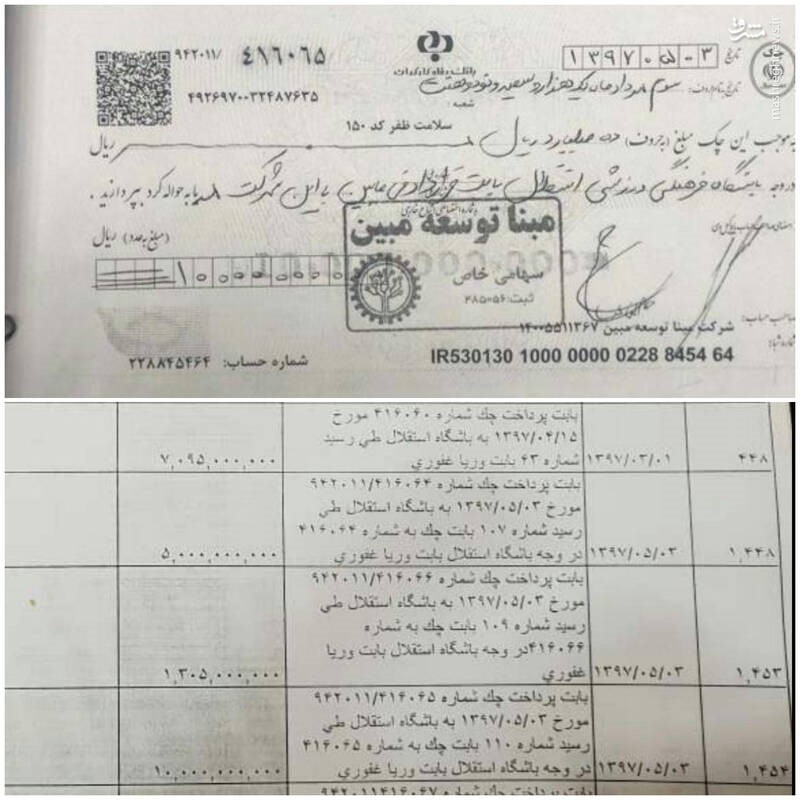 مشرق
mashreghnews.ir
۹۴۲۰۱۱/ ۴۱۶۰۶۵
تاریخ ۱۳۹۷۰۵۰۳
بانک رفاه کارگران
۴۹۲۶۹۷۰۰۳۲۴۸۷۶۳۵
سوم مرداد ماه یکهزار و سیصد و نود و هفت
شعبه:
سلامت ظفر کد ۱۵۰
به موجب این چک مبلغ (بحروف) ده میلیارد ریال ریال
در وجه باشگاه فرهنگی ورزشی استقلال بابت قرارداد فی مابین با این شرکت یا به حواله کرد بپردازید.
مبنا توسعه مبین
(مبلغ به عدد) ریال
سهامی خاص
۱۰۰۰۰۰۰۰۰۰۰
ثبت: ۴۸۵۰۵۶
صاحب حساب: شرکت مبنا توسعه مبین ۱۴۰۰۵۵۱۱۳۶۷
شماره شبا: IR530130 1000 0000 0228 8454 64
شماره حساب: ۲۲۸۸۴۵۴۶۴
بابت پرداخت چك شماره ۴۱۶۰۶۰ مورخ
۱۳۹۷/۰۴/۱۵ به باشگاه استقلال طي رسيد
۴۴۸ ۱۳۹۷/۰۳/۰۱ شماره ۶۳ بابت وريا غفوري ۷,۰۹۵,۰۰۰,۰۰۰
بابت پرداخت چك شماره ۹۴۲۰۱۱/۴۱۶۰۶۴
مورخ ۱۳۹۷/۰۵/۰۳ به باشگاه استقلال طي
رسيد شماره ۱۰۷ بابت چك به شماره ۴۱۶۰۶۴
۱,۴۴۸ ۱۳۹۷/۰۵/۰۳ در وجه باشگاه استقلال بابت وريا غفوري ۵,۰۰۰,۰۰۰,۰۰۰
بابت پرداخت چك شماره ۹۴۲۰۱۱/۴۱۶۰۶۶
مورخ ۱۳۹۷/۰۵/۰۳ به باشگاه استقلال طي
رسيد شماره ۱۰۹ بابت چك به شماره
۴۱۶۰۶۶در وجه باشگاه استقلال بابت وريا
۱,۴۵۳ ۱۳۹۷/۰۵/۰۳ غفوري ۱,۳۰۵,۰۰۰,۰۰۰
بابت پرداخت چك شماره ۹۴۲۰۱۱/۴۱۶۰۶۵
مورخ ۱۳۹۷/۰۵/۰۳ به باشگاه استقلال طي
رسيد شماره ۱۱۰ بابت چك به شماره ۴۱۶۰۶۵
۱,۴۵۴ ۱۳۹۷/۰۵/۰۳ در وجه باشگاه استقلال بابت وريا غفوري ۱۰,۰۰۰,۰۰۰,۰۰۰
بابت پرداخت چك شماره ۹۴۲۰۱۱/۴۱۶۰۶۷